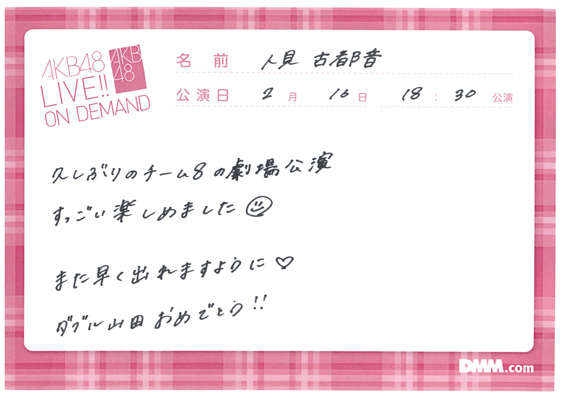 AKB48
LIVE!!
ON DEMAND
AKB
48
名前 人見 古都音
公演日 2月 16日 18:30 公演
久しぶりのチーム8の劇場公演
すっごい楽しめました
また早く出れますように♡
ダブル山田おめでとう!!
DMM.com